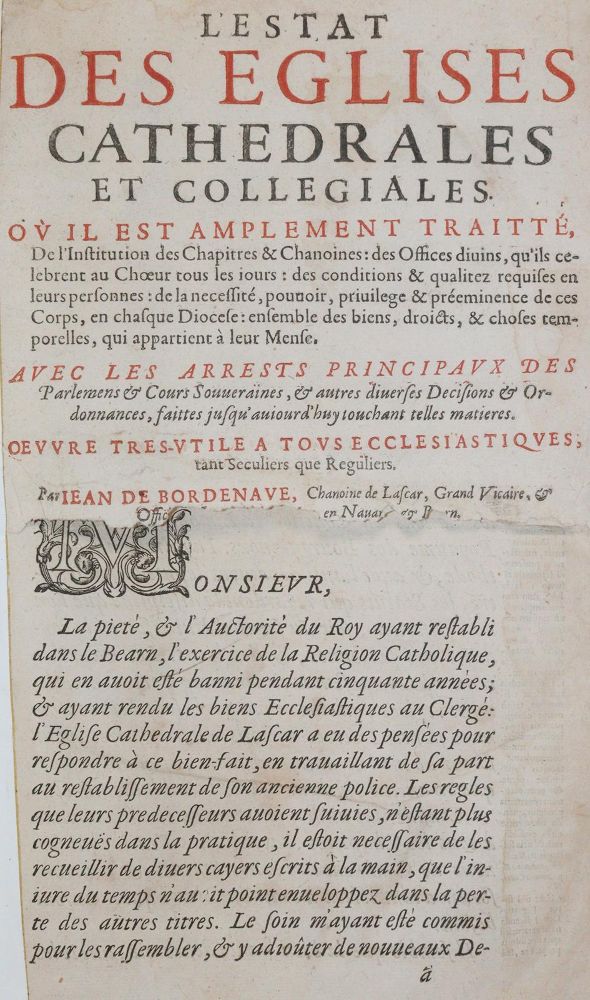 L'ESTAT
DES EGLISES
CATHEDRALES
ET COLLEGIALES.
OV̀ IL EST AMPLEMENT TRAITTÉ,
De l'Inſtitution des Chapitres & Chanoines : des Offices diuins, qu'ils ce-
lebrent au Chœur tous les iours : des conditions & qualitez requiſes en
leurs perſonnes : de la neceſſité, pouuoir, priuilege & préeminence de ces
Corps, en chaſque Dioceſe : enſemble des biens, droicts, & choſes tem-
porelles, qui appartient à leur Menſe.
AVEC LES ARRESTS PRINCIPAVX DES
Parlemens & Cours Souueraines, & autres diuerſes Deciſions & Or-
donnances, faittes juſqu'auiourd'huy touchant telles matieres.
OEVVRE TRES-VTILE A TOVS ECCLESIASTIQVES,
tant Seculiers que Reguliers.
Par IEAN DE BORDENAVE, Chanoine de Laſcar, Grand Vicaire, &
en Nauar & B
MONSIEVR,
La pieté, & l'Auctorité du Roy ayant reſtabli
dans le Bearn, l'exercice de la Religion Catholique,
qui en auoit eſté banni pendant cinquante années;
& ayant rendu les biens Eccleſiaſtiques au Clergé:
l'Egliſe Cathedrale de Laſcar a eu des penſées pour
reſpondre à ce bien-fait, en trauaillant de ſa part
au reſtabliſſement de ſon ancienne police. Les regles
que leurs predeceſſeurs auoient ſuiuies, n'eſtant plus
cogneuës dans la pratique, il eſtoit neceſſaire de les
recueillir de diuers cayers eſcrits à la main, que l'in-
iure du temps n'au it point enueloppez dans la per-
te des autres titres. Le ſoin m'ayant eſté commis
pour les raſſembler, & y adioûter de nouueaux De-
ã